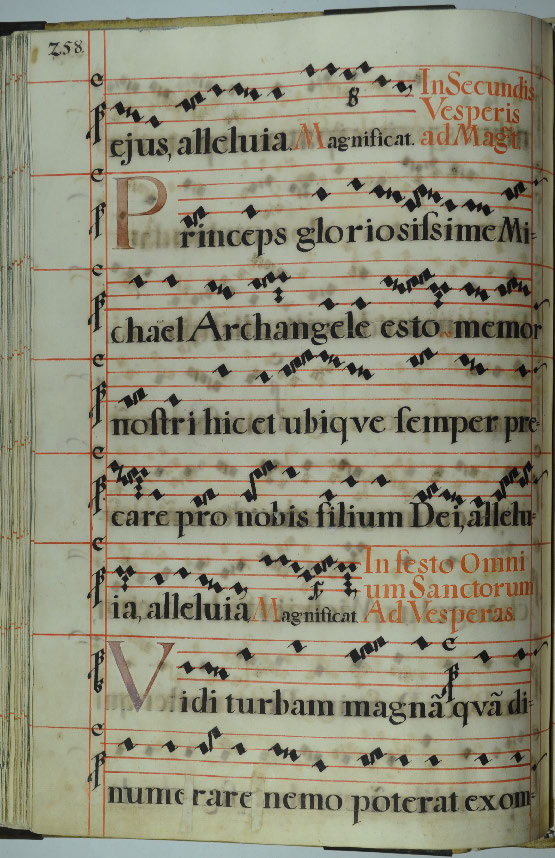 258
In Secundis
Vesperis
ejus, alleluia. Magnificat. ad Magt.
Princeps gloriosiſsime Mi-
chael Archangele esto memor
noſtri hic et ubiqve ſemper pre-
care pro nobis filium Dei, allelu-
In feſto Omni
um Sanctorum
ia, alleluia Magnificat Ad Vesperas
Vidi turbam magnã qvã di-
nume rare nemo poterat ex om-